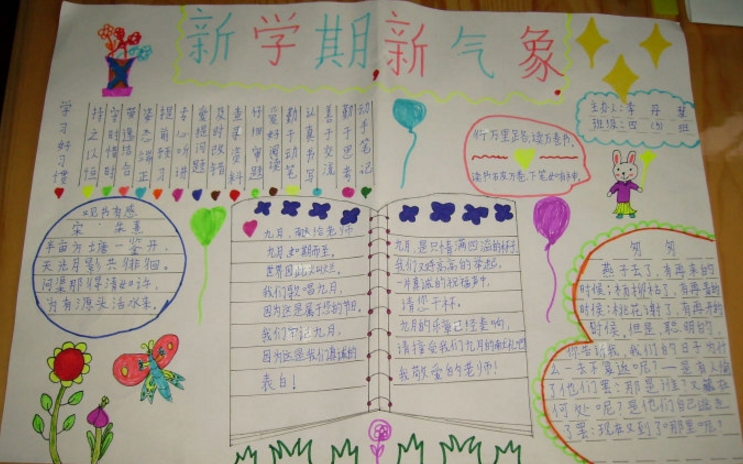 新学期新气象
主办人：李丹
班级：四(3)班
学习好习惯
动手笔记
勤于思考
善于交流
认真书写
勤于动笔
爱好阅读
仔细审题
查算资料
及时改错
爱提问题
专心听讲
提前预习
姿态端正
劳逸结合
守时惜时
持之以恒
行万里路,读万卷书。
读书破万卷,下笔如有神。
观书有感
宋 朱熹
半亩方塘一鉴开,
天光月影共徘徊。
问渠那得清如许,
为有源头活水来。
九月,献给老师
九月,如期而至。
世界因此灿烂。
我们歌唱九月,
因为这是属于您的节日。
我们牢记九月,
因为这是我们真诚的
表白！
九月,是只情满四溢的杯子
我们又将高高的举起,
一片真诚的祝福声中,
请您干杯。
九月的乐章已经奏响,
请接受我们九月的献礼吧
我敬爱的老师！
匆匆
燕子去了,有再来的
时候;杨柳枯了,有再青的
时候;桃花谢了,有再开的
时候。但是,聪明的,
你告诉我,我们的日子为什
么一去不复返呢?一是有人偷
了他们罢:那是谁?又藏在
何处呢?是他们自己逃走
了罢:现在又到了哪里呢?